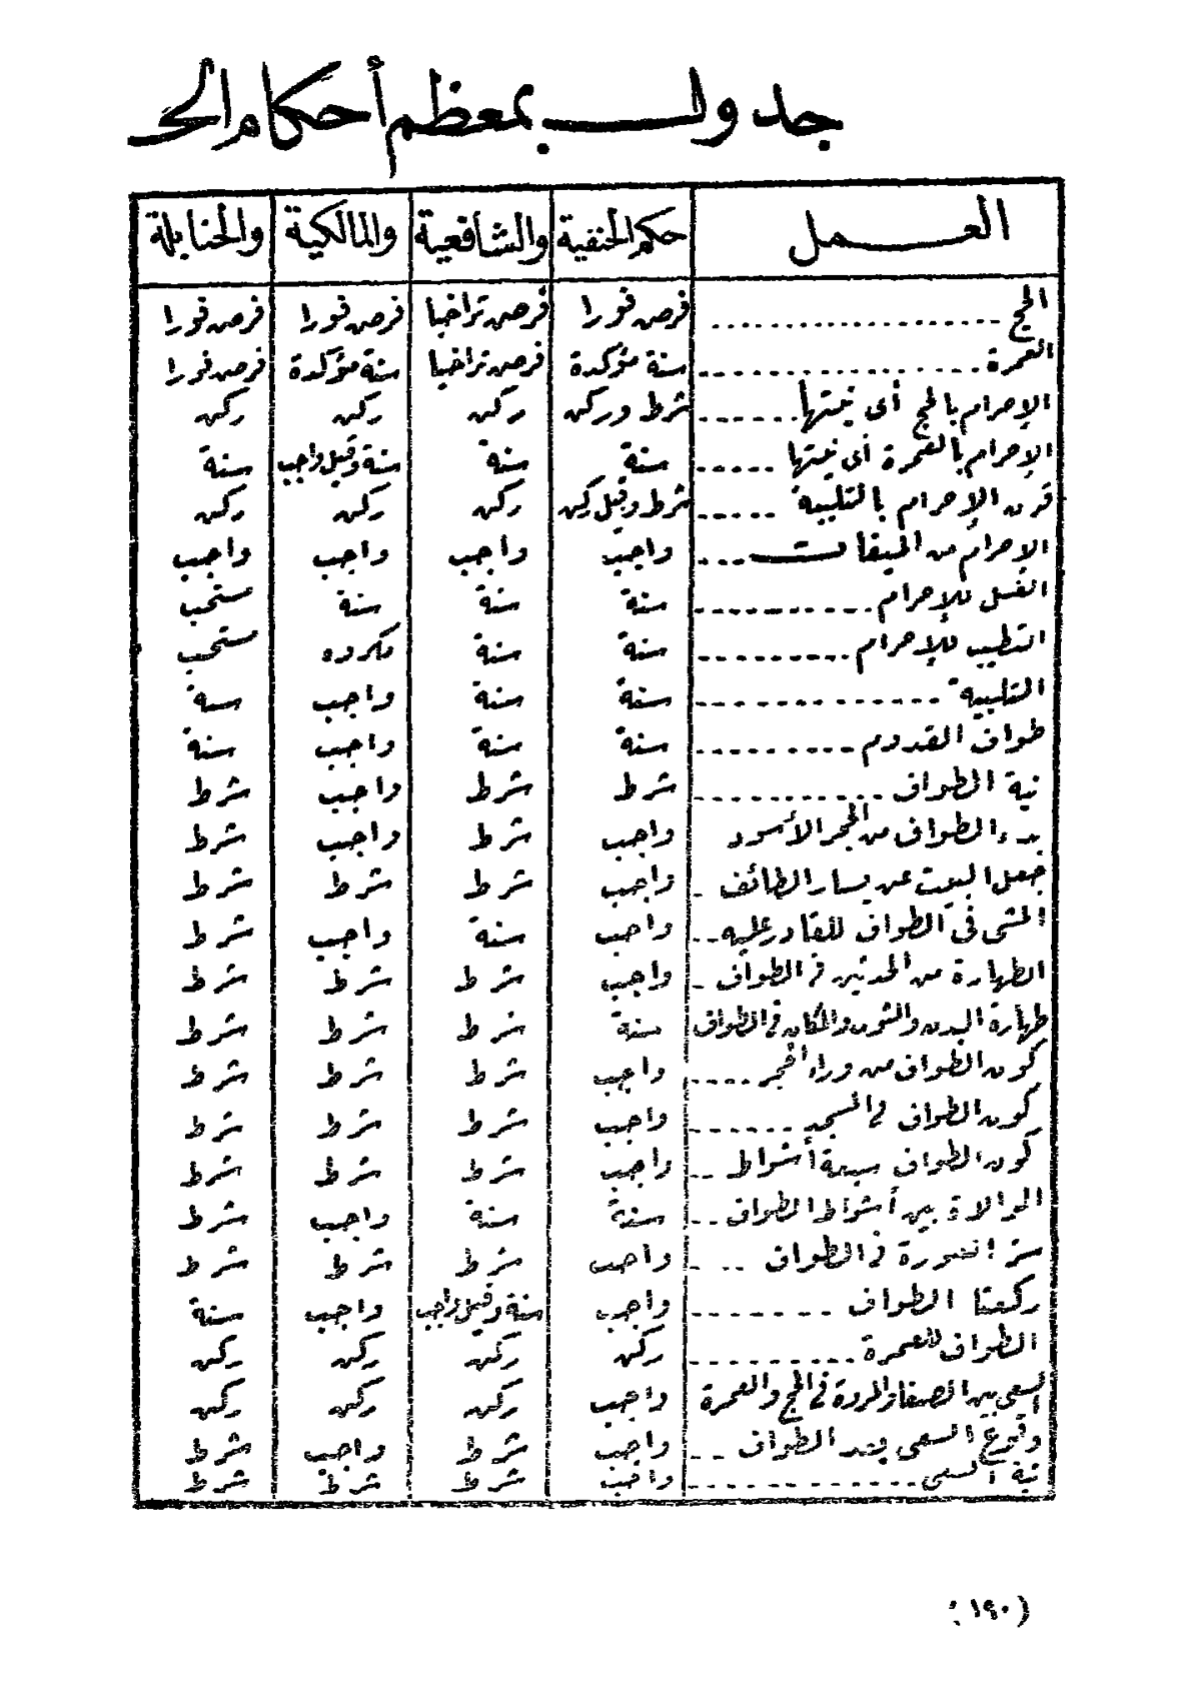 جدول بمعظم أحكام الحـ
العمل حكم الحنفية والشافعية والمالكية والحنابلة
الحج .................. فرض فورا فرض تراخيا فرض فورا فرض فورا
العمرة .................. سنة مؤكدة فرض تراخيا سنة مؤكدة فرض فورا
الإحرام بالحج أى نيتها ...... شرط وركن ركن ركن ركن
الإحرام بالعمرة أى نيتها ..... سنة سنة سنة وقيل واجب سنة
قرن الإحرام بالتلبية ..... شرط وقيل ركن ركن ركن ركن
الإحرام من الميقات ... واجب واجب واجب واجب
الغسل للإحرام ........... سنة سنة سنة مستحب
التطيب للإحرام .......... سنة سنة مكروه مستحب
التلبية .............. سنة سنة واجب سنة
طواف القدوم .......... سنة سنة واجب سنة
نية الطواف ............ شرط شرط واجب شرط
بدء الطواف من الحجر الأسود واجب شرط واجب شرط
جعل البيت عن يسار الطائف . واجب شرط شرط شرط
المشى فى الطواف للقادر عليه .. واجب سنة واجب شرط
الطهارة من الحدثين فى الطواف . واجب شرط شرط شرط
طهارة البدن والثوب والمكان فى الطواف سنة شرط شرط شرط
كون الطواف من وراء الحجر .... واجب شرط شرط شرط
كون الطواف فى المسجد ....... واجب شرط شرط شرط
كون الطواف سبعة أشواط .. واجب شرط شرط شرط
الموالاة بين أشواط الطواف .. سنة سنة واجب شرط
ستر العورة فى الطواف ... واجب شرط شرط شرط
ركعتا الطواف ........ واجب سنة وقيل واجب واجب سنة
الطواف للعمرة .......... ركن ركن ركن ركن
السعى بين الصفا والمروة فى الحج والعمرة واجب ركن ركن ركن
وقوع السعى بعد الطواف .. واجب شرط واجب شرط
نية السعى ............. واجب شرط شرط شرط
(١٩٠)